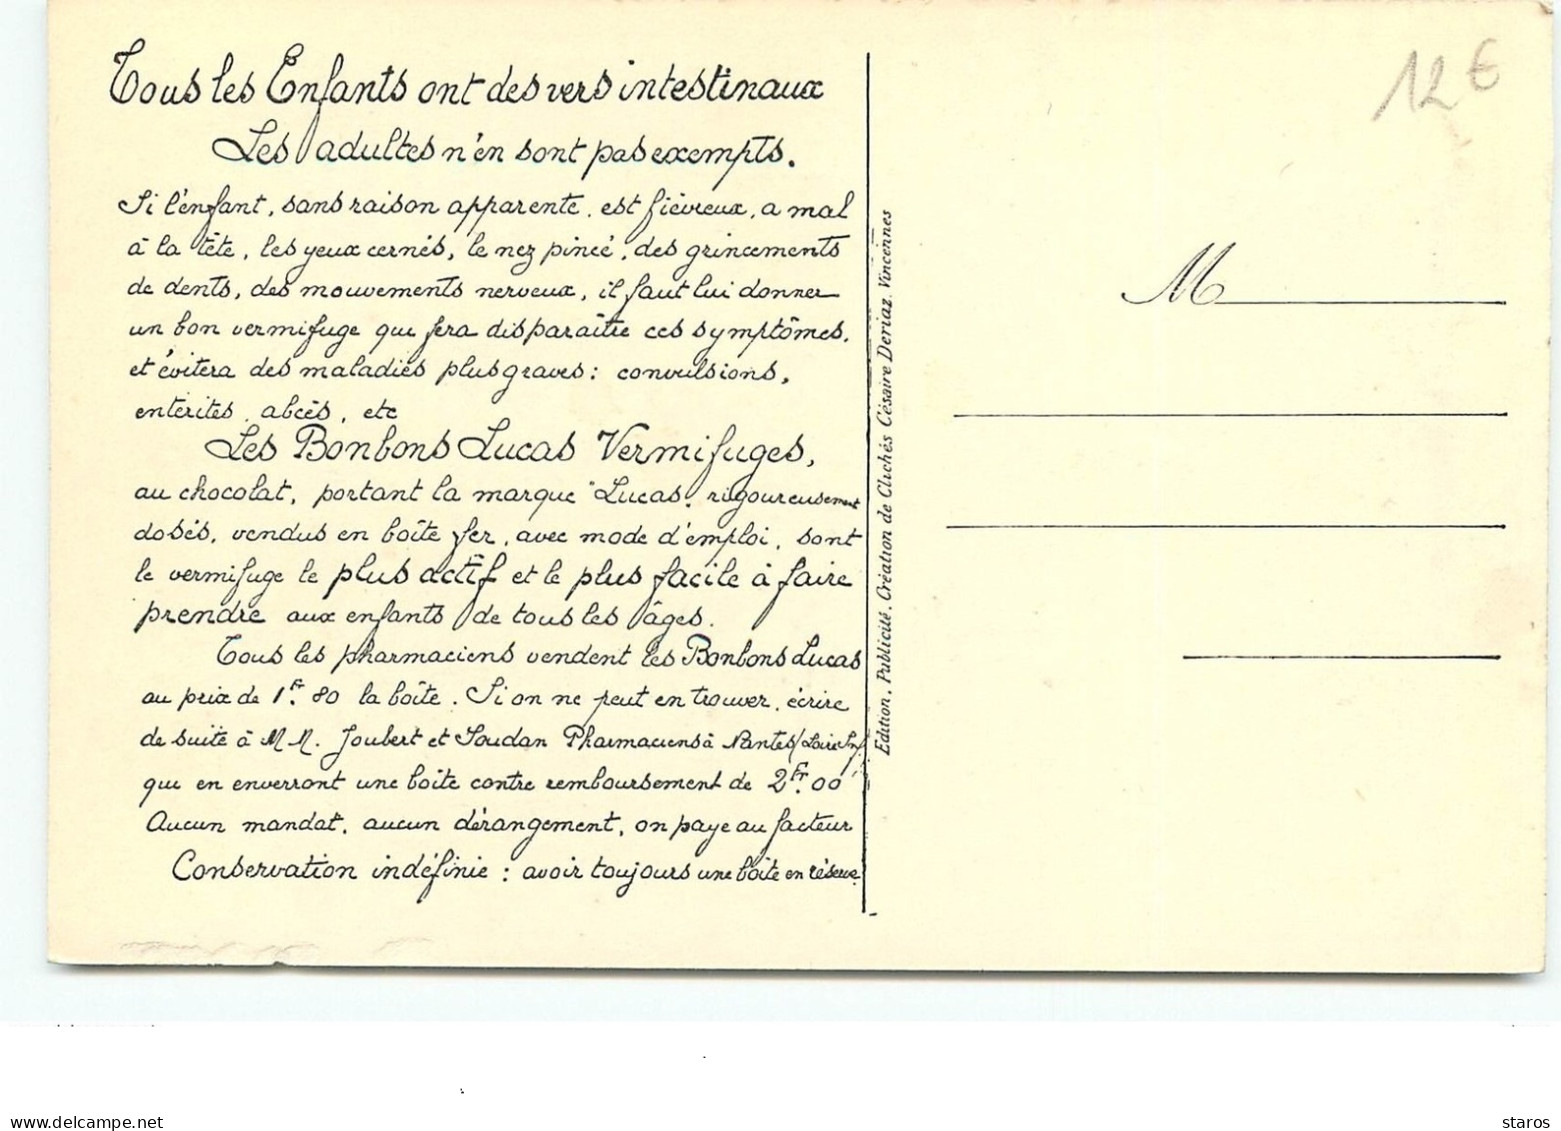 Tous les Enfants ont des vers intestinaux
Les adultes n'en sont pas exempts.
Si l'enfant, sans raison apparente, est fiévreux, a mal
à la tête, les yeux cernés, le nez pincé, des grincements
de dents, des mouvements nerveux, il faut lui donner
un bon vermifuge qui fera disparaître ces symptômes,
et évitera des maladies plus graves : convulsions,
entérites, abcès, etc
Les Bonbons Lucas Vermifuges,
au chocolat, portant la marque "Lucas, rigoureusement
dosés, vendus en boîte fer, avec mode d'emploi, sont
le vermifuge le plus actif et le plus facile à faire
prendre aux enfants de tous les âges.
Tous les pharmaciens vendent les Bonbons Lucas
au prix de 1Fr. 80 la boîte. Si on ne peut en trouver, écrire
de suite à MM. Joubert et Soudan Pharmaciens à Nantes (Loire Inf)
qui en enverront une boîte contre remboursement de 2Fr. 00
Aucun mandat, aucun dérangement, on paye au facteur
Conservation indéfinie : avoir toujours une boîte en réserve.
Edition, Publicité, Création de Clichés Césaire Deriaz. Vincennes
12 €
M
www.delcampe.net
staros